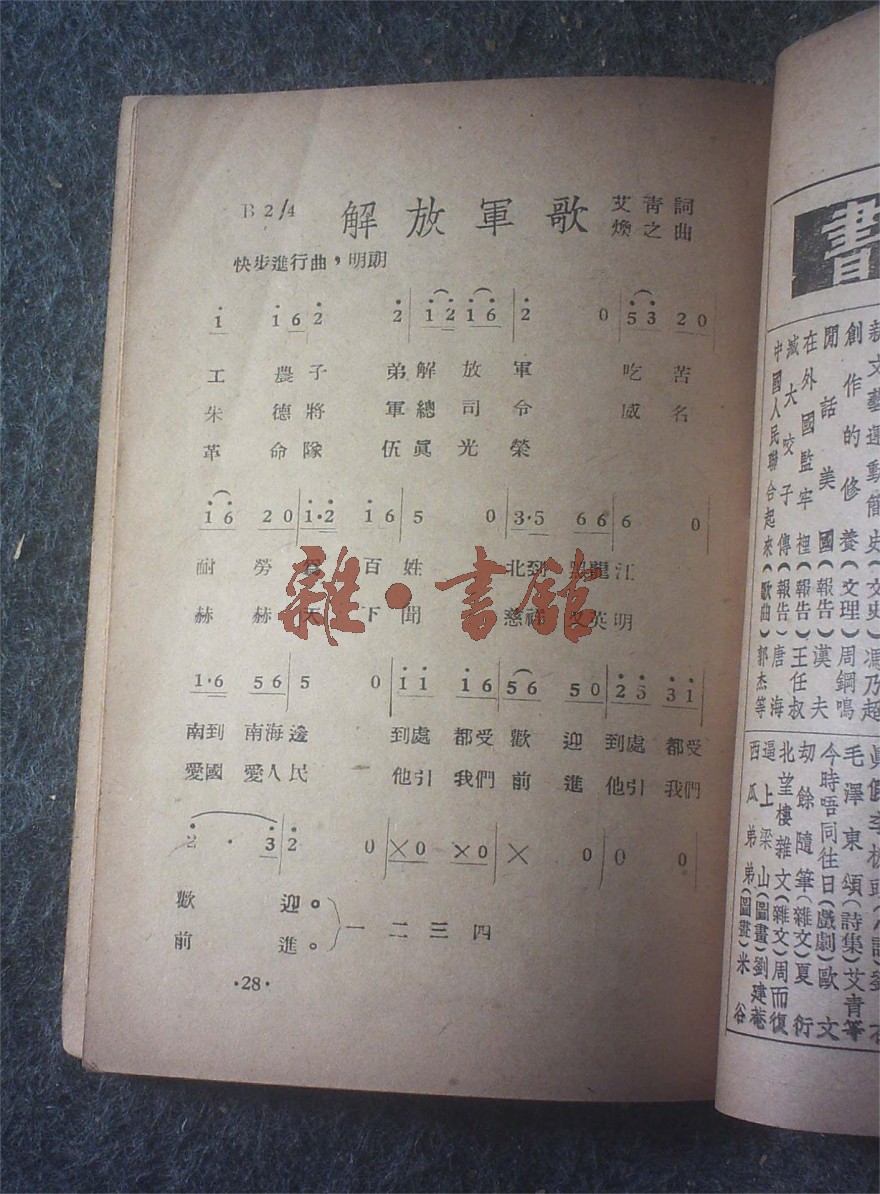 B 2/4
解放軍歌
艾青詞
煥之曲
快步進行曲，明朗
1 1 6 2 2 1 2 1 6 2 0 5 3 2 0
工農子弟解放軍 吃苦
朱德將軍總司令 威名
革命隊伍眞光榮
1 6 2 0 1·2 1 6 5 0 3·5 6 6 6 0
耐勞 百姓 北到黑龍江
赫赫天下聞 慈祥 英明
1·6 5 6 5 0 1 1 1 6 5 6 5 0 2 5 3 1
南到南海邊 到處都受歡迎到處都受
愛國愛人民 他引我們前進他引我們
2 · 3 2 0 X 0 X 0 X 0 0 0
歡迎。
前進。
一二三四
·28·
雜·書館
書
新文藝運動簡史（文史）馮乃超
創作的修養（文理）周鋼鳴
閒話美國（報告）漢夫
在外國監牢裡（報告）王任叔
滅大咬子傳（報告）唐海
中國人民聯合起來（歌曲）郭杰等
眞假李板頭
毛澤東頌（詩集）艾青等
今時唔同往日（戲劇）歐文
刧餘隨筆（雜文）夏衍
北望樓雜文（雜文）周而復
逼上梁山（圖畫）劉建菴
西瓜弟弟（圖畫）米谷